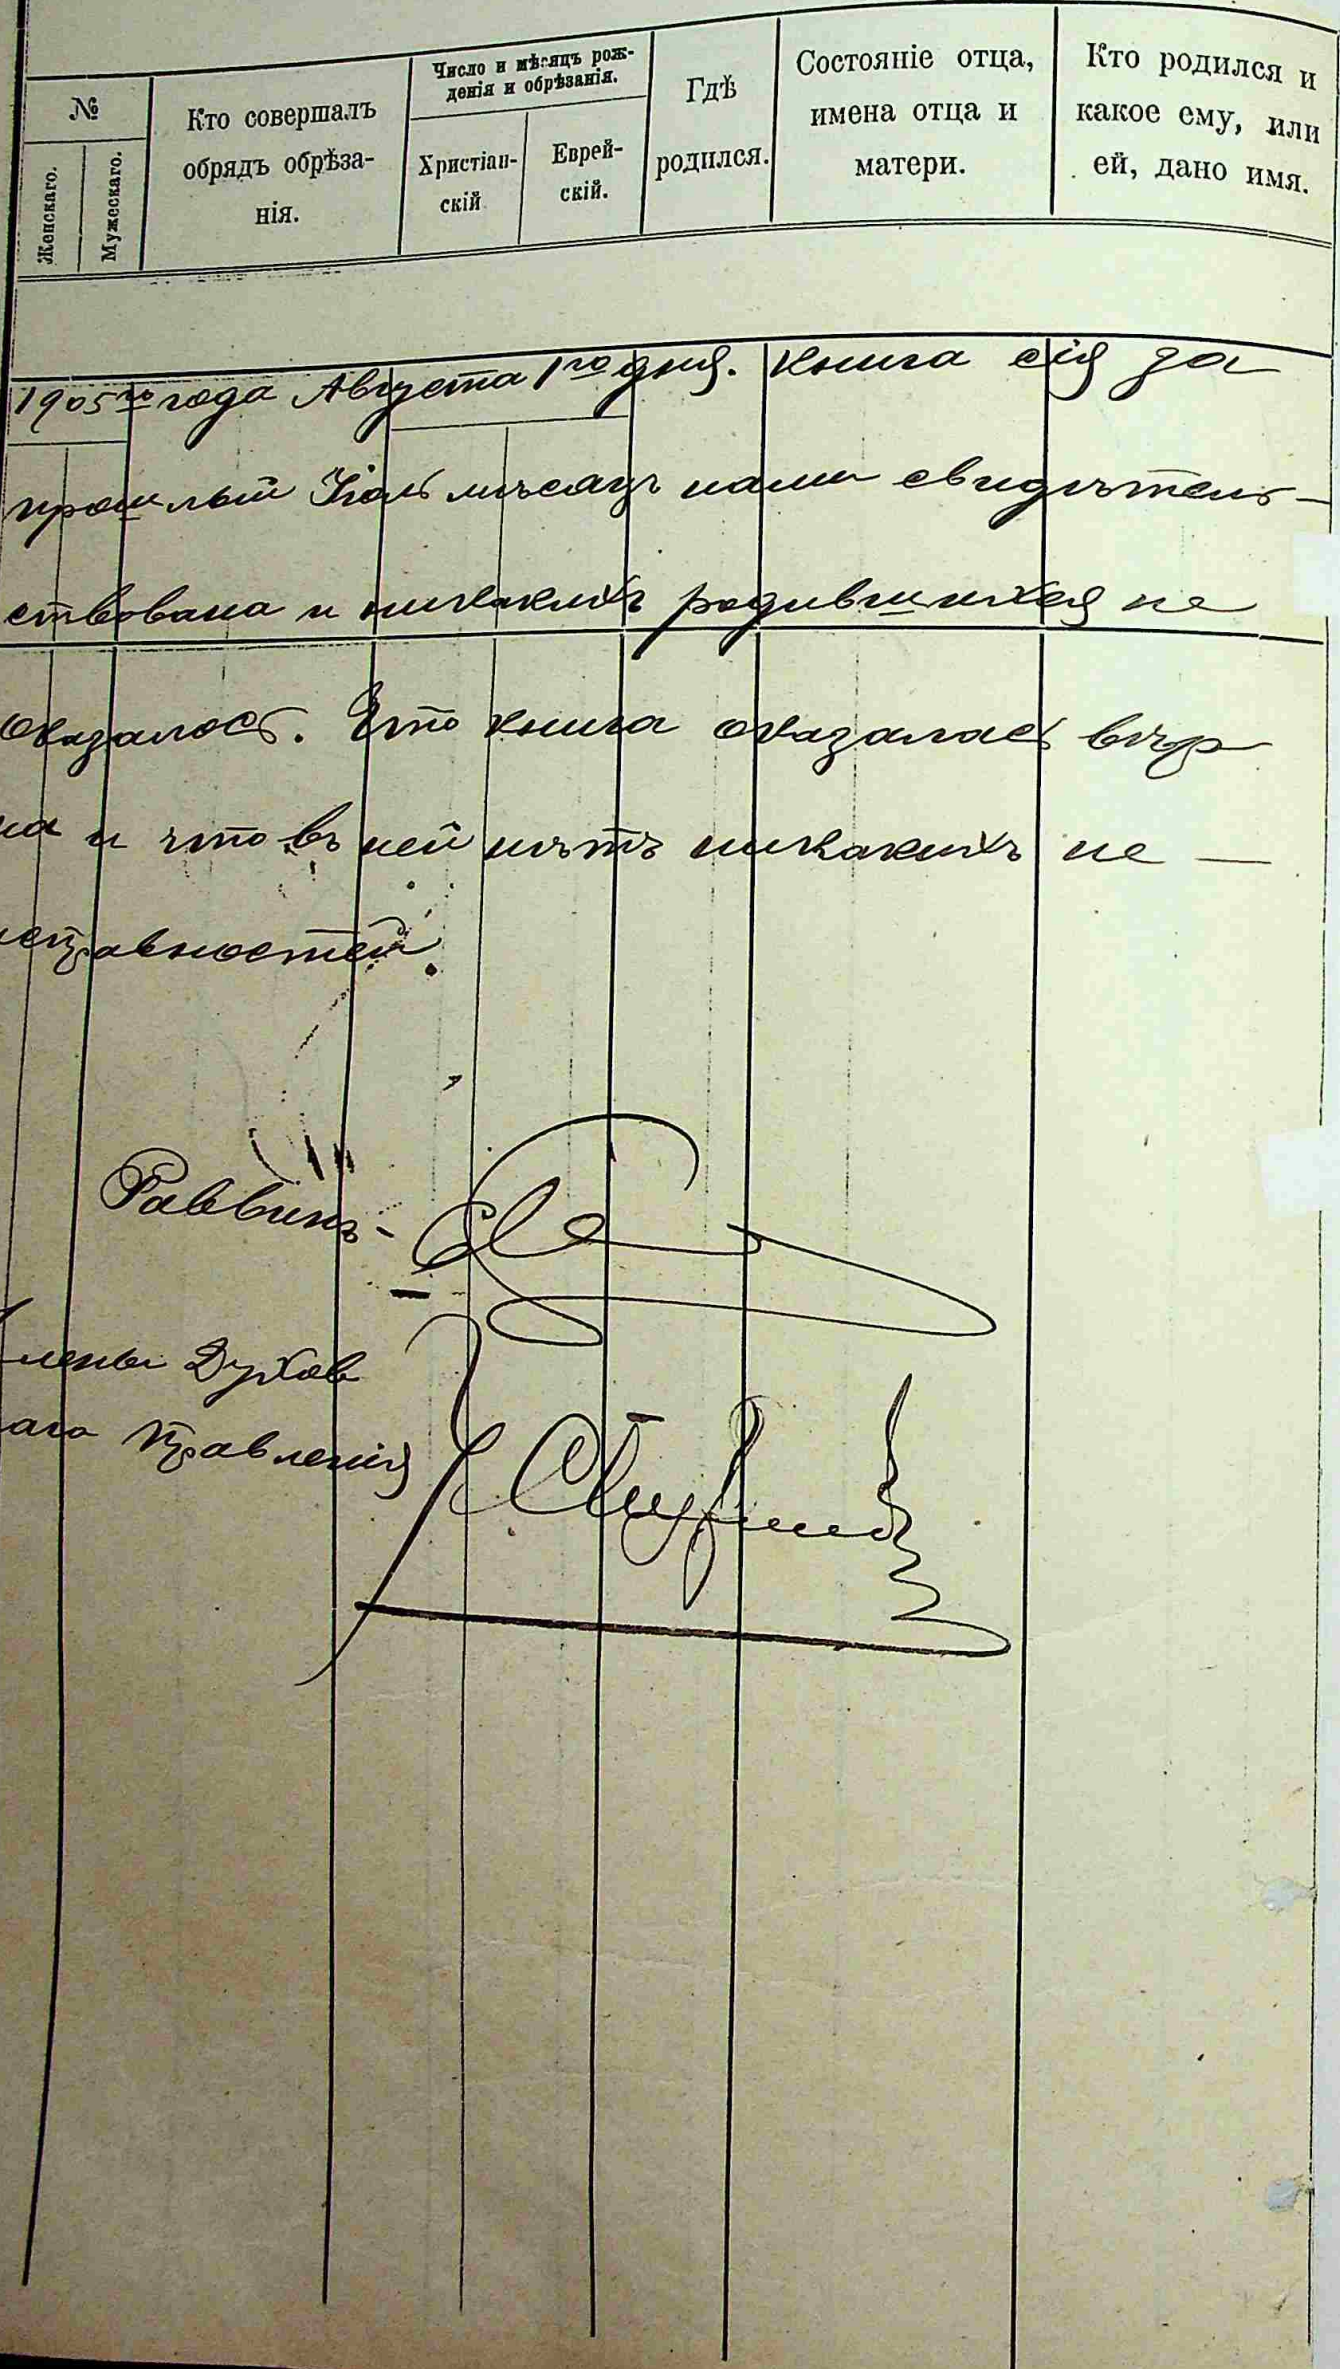 №
Женскаго.
Мужескаго.
Кто совершалъ
обрядъ обрѣза-
нія.
Число и мѣсяцъ рож-
денія и обрѣзанія.
Христіан-
скій
Еврей-
скій.
Гдѣ
родился.
Состояніе отца,
имена отца и
матери.
Кто родился и
какое ему, или
ей, дано имя.
1905го года Августа 1го дня. Книга сія за
прошлый Іюль мѣсяцъ нами свидѣтель-
ствована и никакихъ родившихся не
оказалось. Что книга оказалась вѣр
на и что въ ней нѣтъ никакихъ не —
исправностей
Раввинъ -
лены Духов
аго Правленія